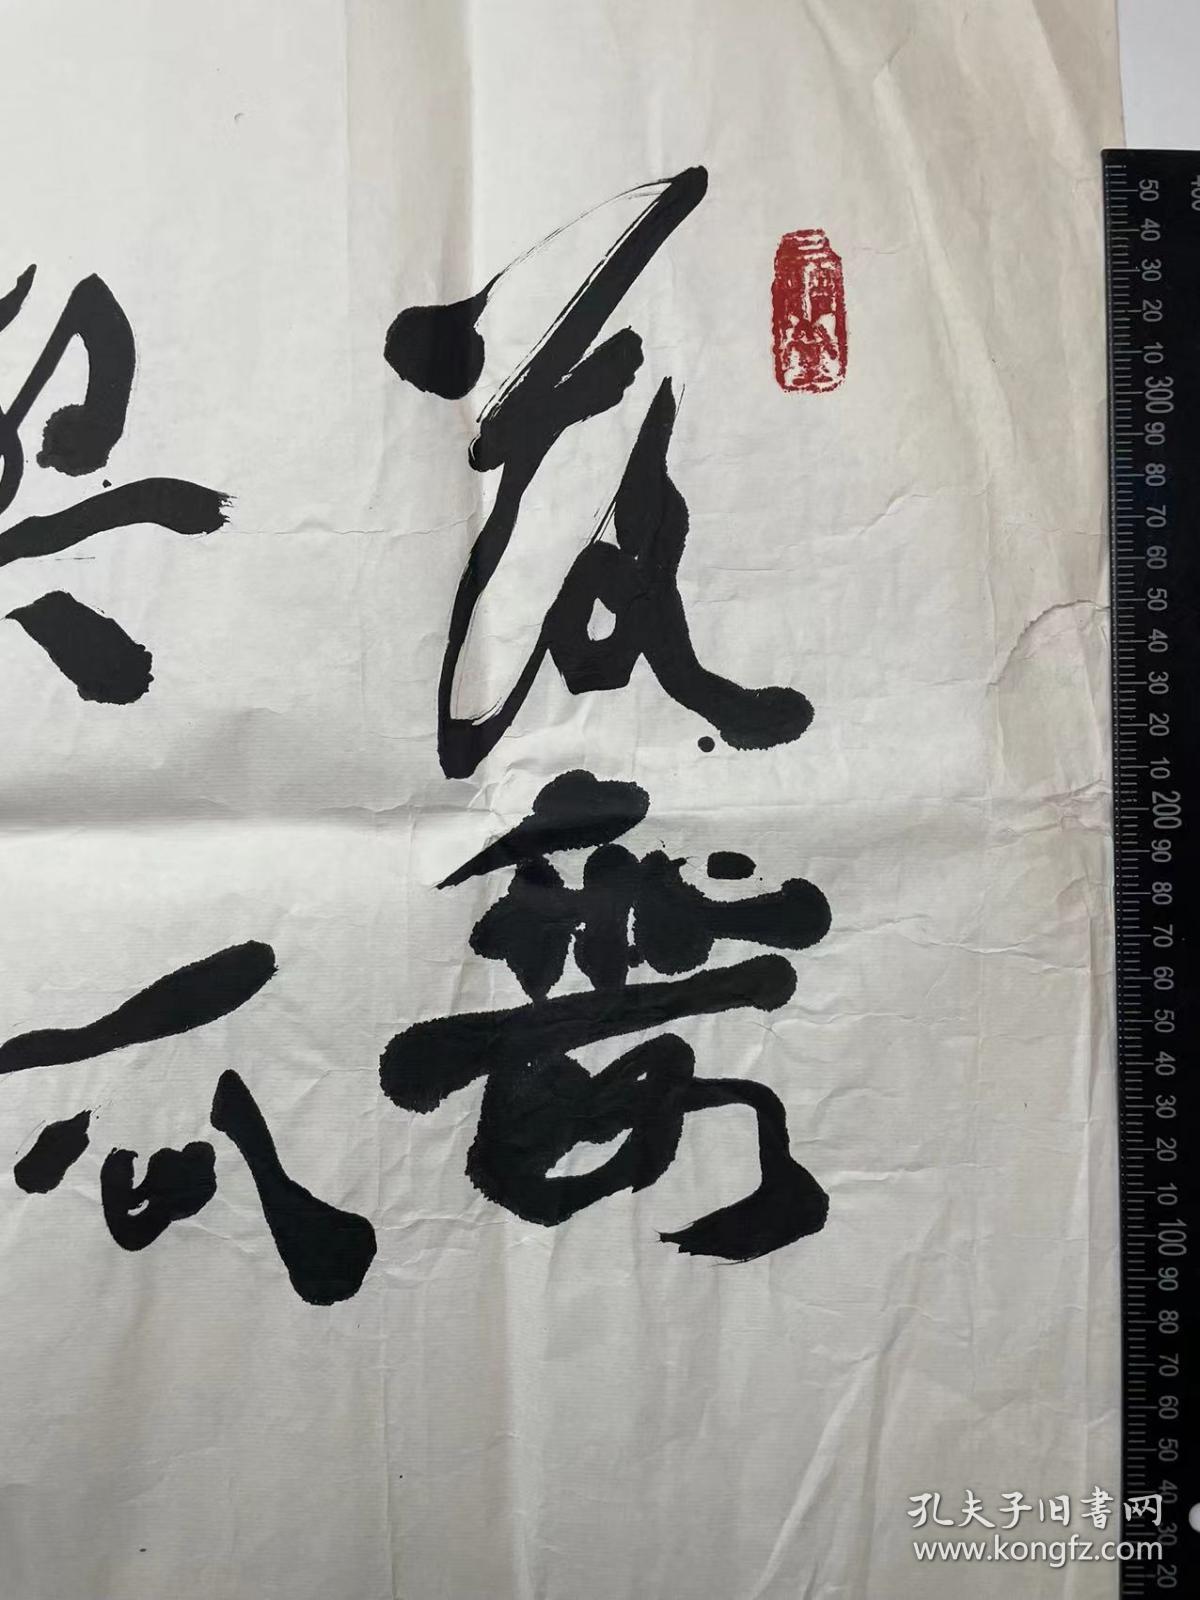 落霞
與孤
400
50 40 30 20 10 300 90 80 70 60 50 40 30 20 10 200 90 80 70 60 50 40 30 20 10 100 90 80 70 60 50 40 30 20
孔夫子旧書网
www.kongfz.com